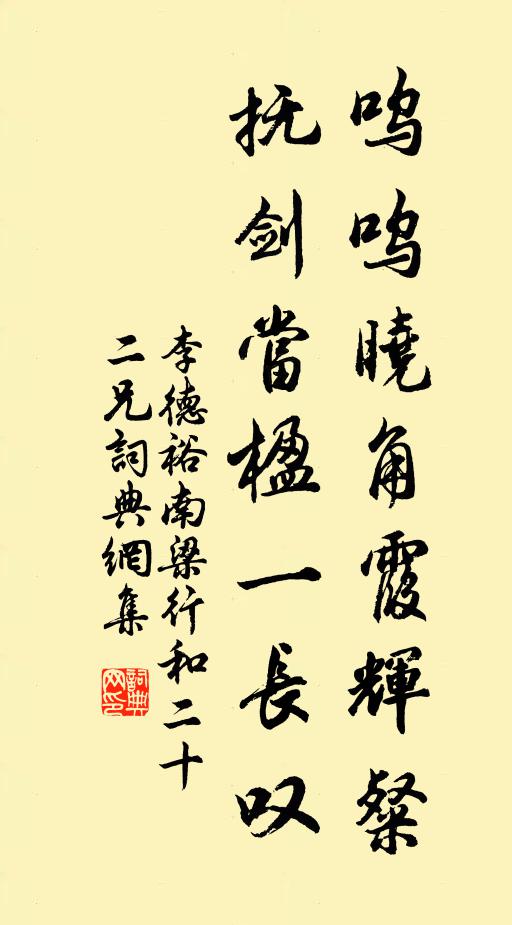 呜呜曉角霞輝粲
抚剑當楹一長叹
李德裕南梁行和二十
二兄詞典網集
詞典网印